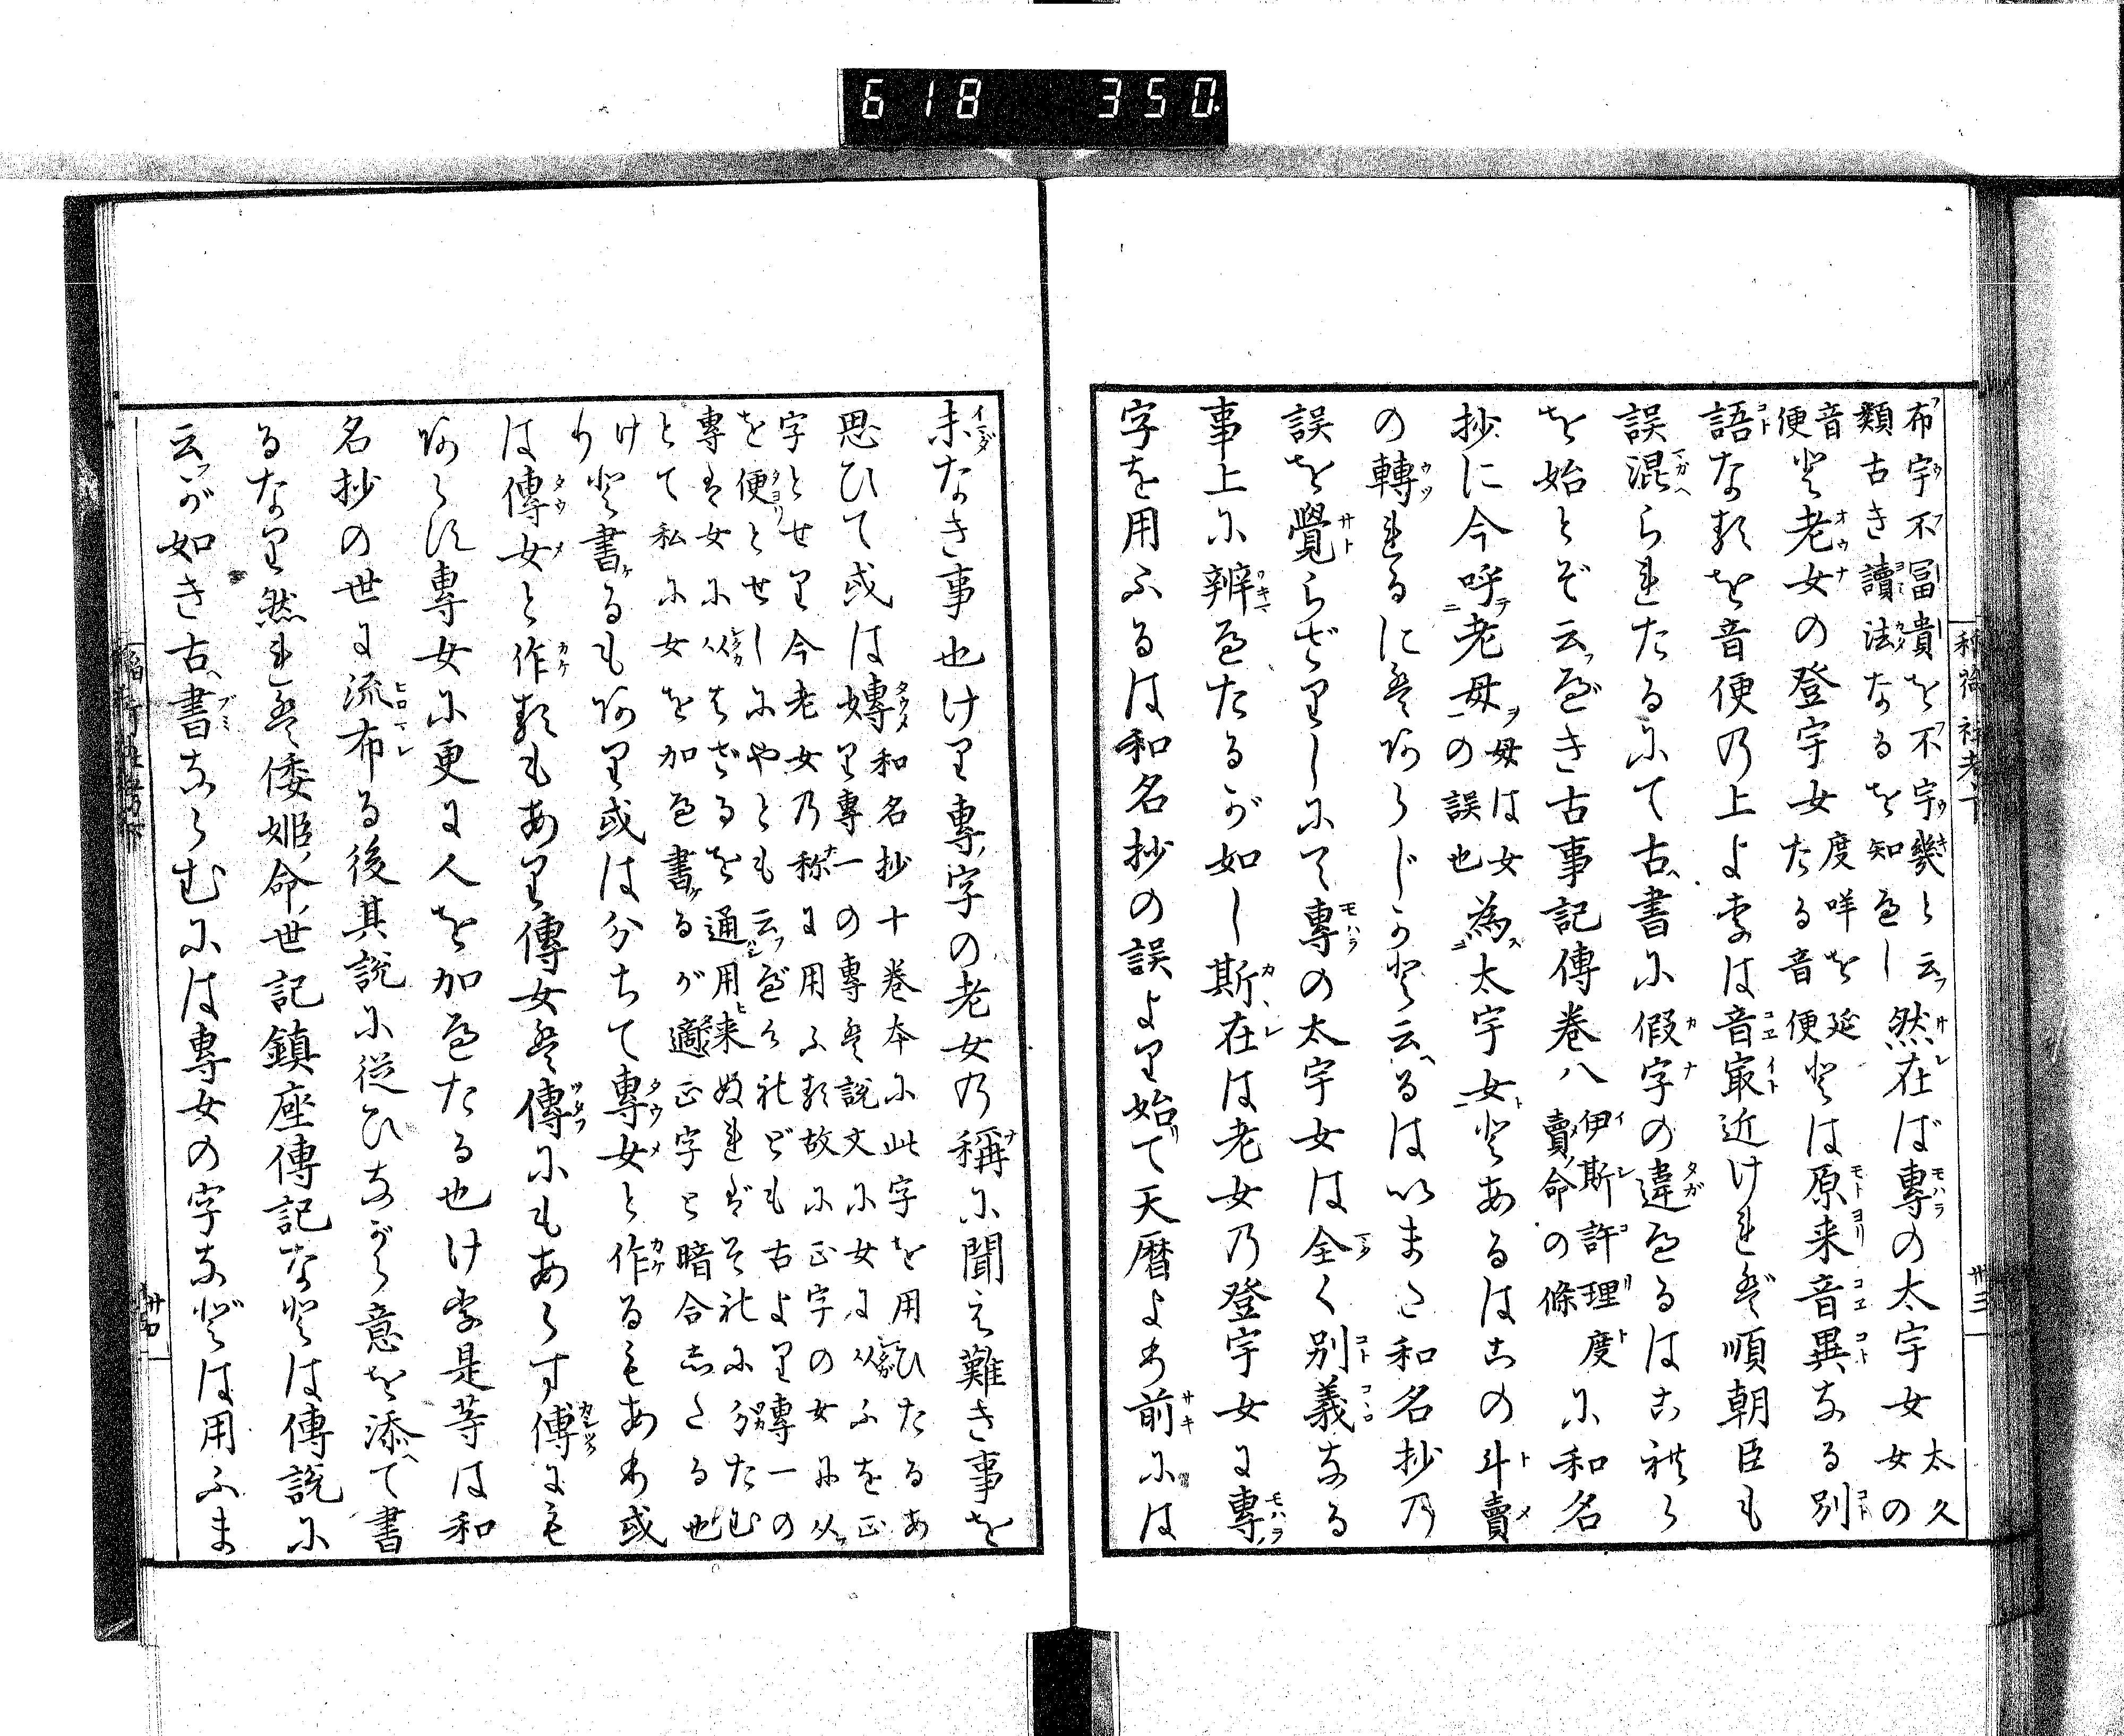 618 350
布宇不冨貴を不宇幾と云
類古き讀法なるを知るべし
然在ば專の太宇女
太久女の
音便と老女の登宇女
度咩を延たる音便
とは原来音異なる別
語なるを音便の上よりは音最近ければ順朝臣も
誤混られたるにて古書に假字の違へるはこれら
を始とぞ云べき古事記傳巻八
伊斯許理度賣命の條
に和名
抄に今呼老母
母は女の誤也
為太宇女とあるはこの斗賣
の轉れるにはあらじかと云るはいまだ和名抄の
誤を覺らざりしにて專の太宇女は全く別義なる
事上に辨へたるが如し斯在は老女の登宇女に專
字を用ふるは和名抄の誤より始て天暦より前には
未なき事也けり專字の老女の稱に聞え難き事を
思ひて或は嫥
和名抄十巻本に此字を用ひたるあり
專一の專は説文に女に从ふを正
字とせり今老女の称に用ふる故に正字の女に从
を便とせしにやとも云べけれども古より專一の
專は女に从はざるを通用来ぬればそれに分たむ
とて私に女を加へ書るが適正字と暗合したる也
けり
と書るもあり或は分ちて專女と作るもあり或
は傳女と作るもあり傳女は傳にもあらず傅にも
あらず專女に更に人を加へたる也けり是等は和
名抄の世に流布る後其説に従ひながら意を添て書
るなり然れば倭姫命世記鎮座傳記などは傳説に
云が如き古書ならむには專女の字などは用ふま